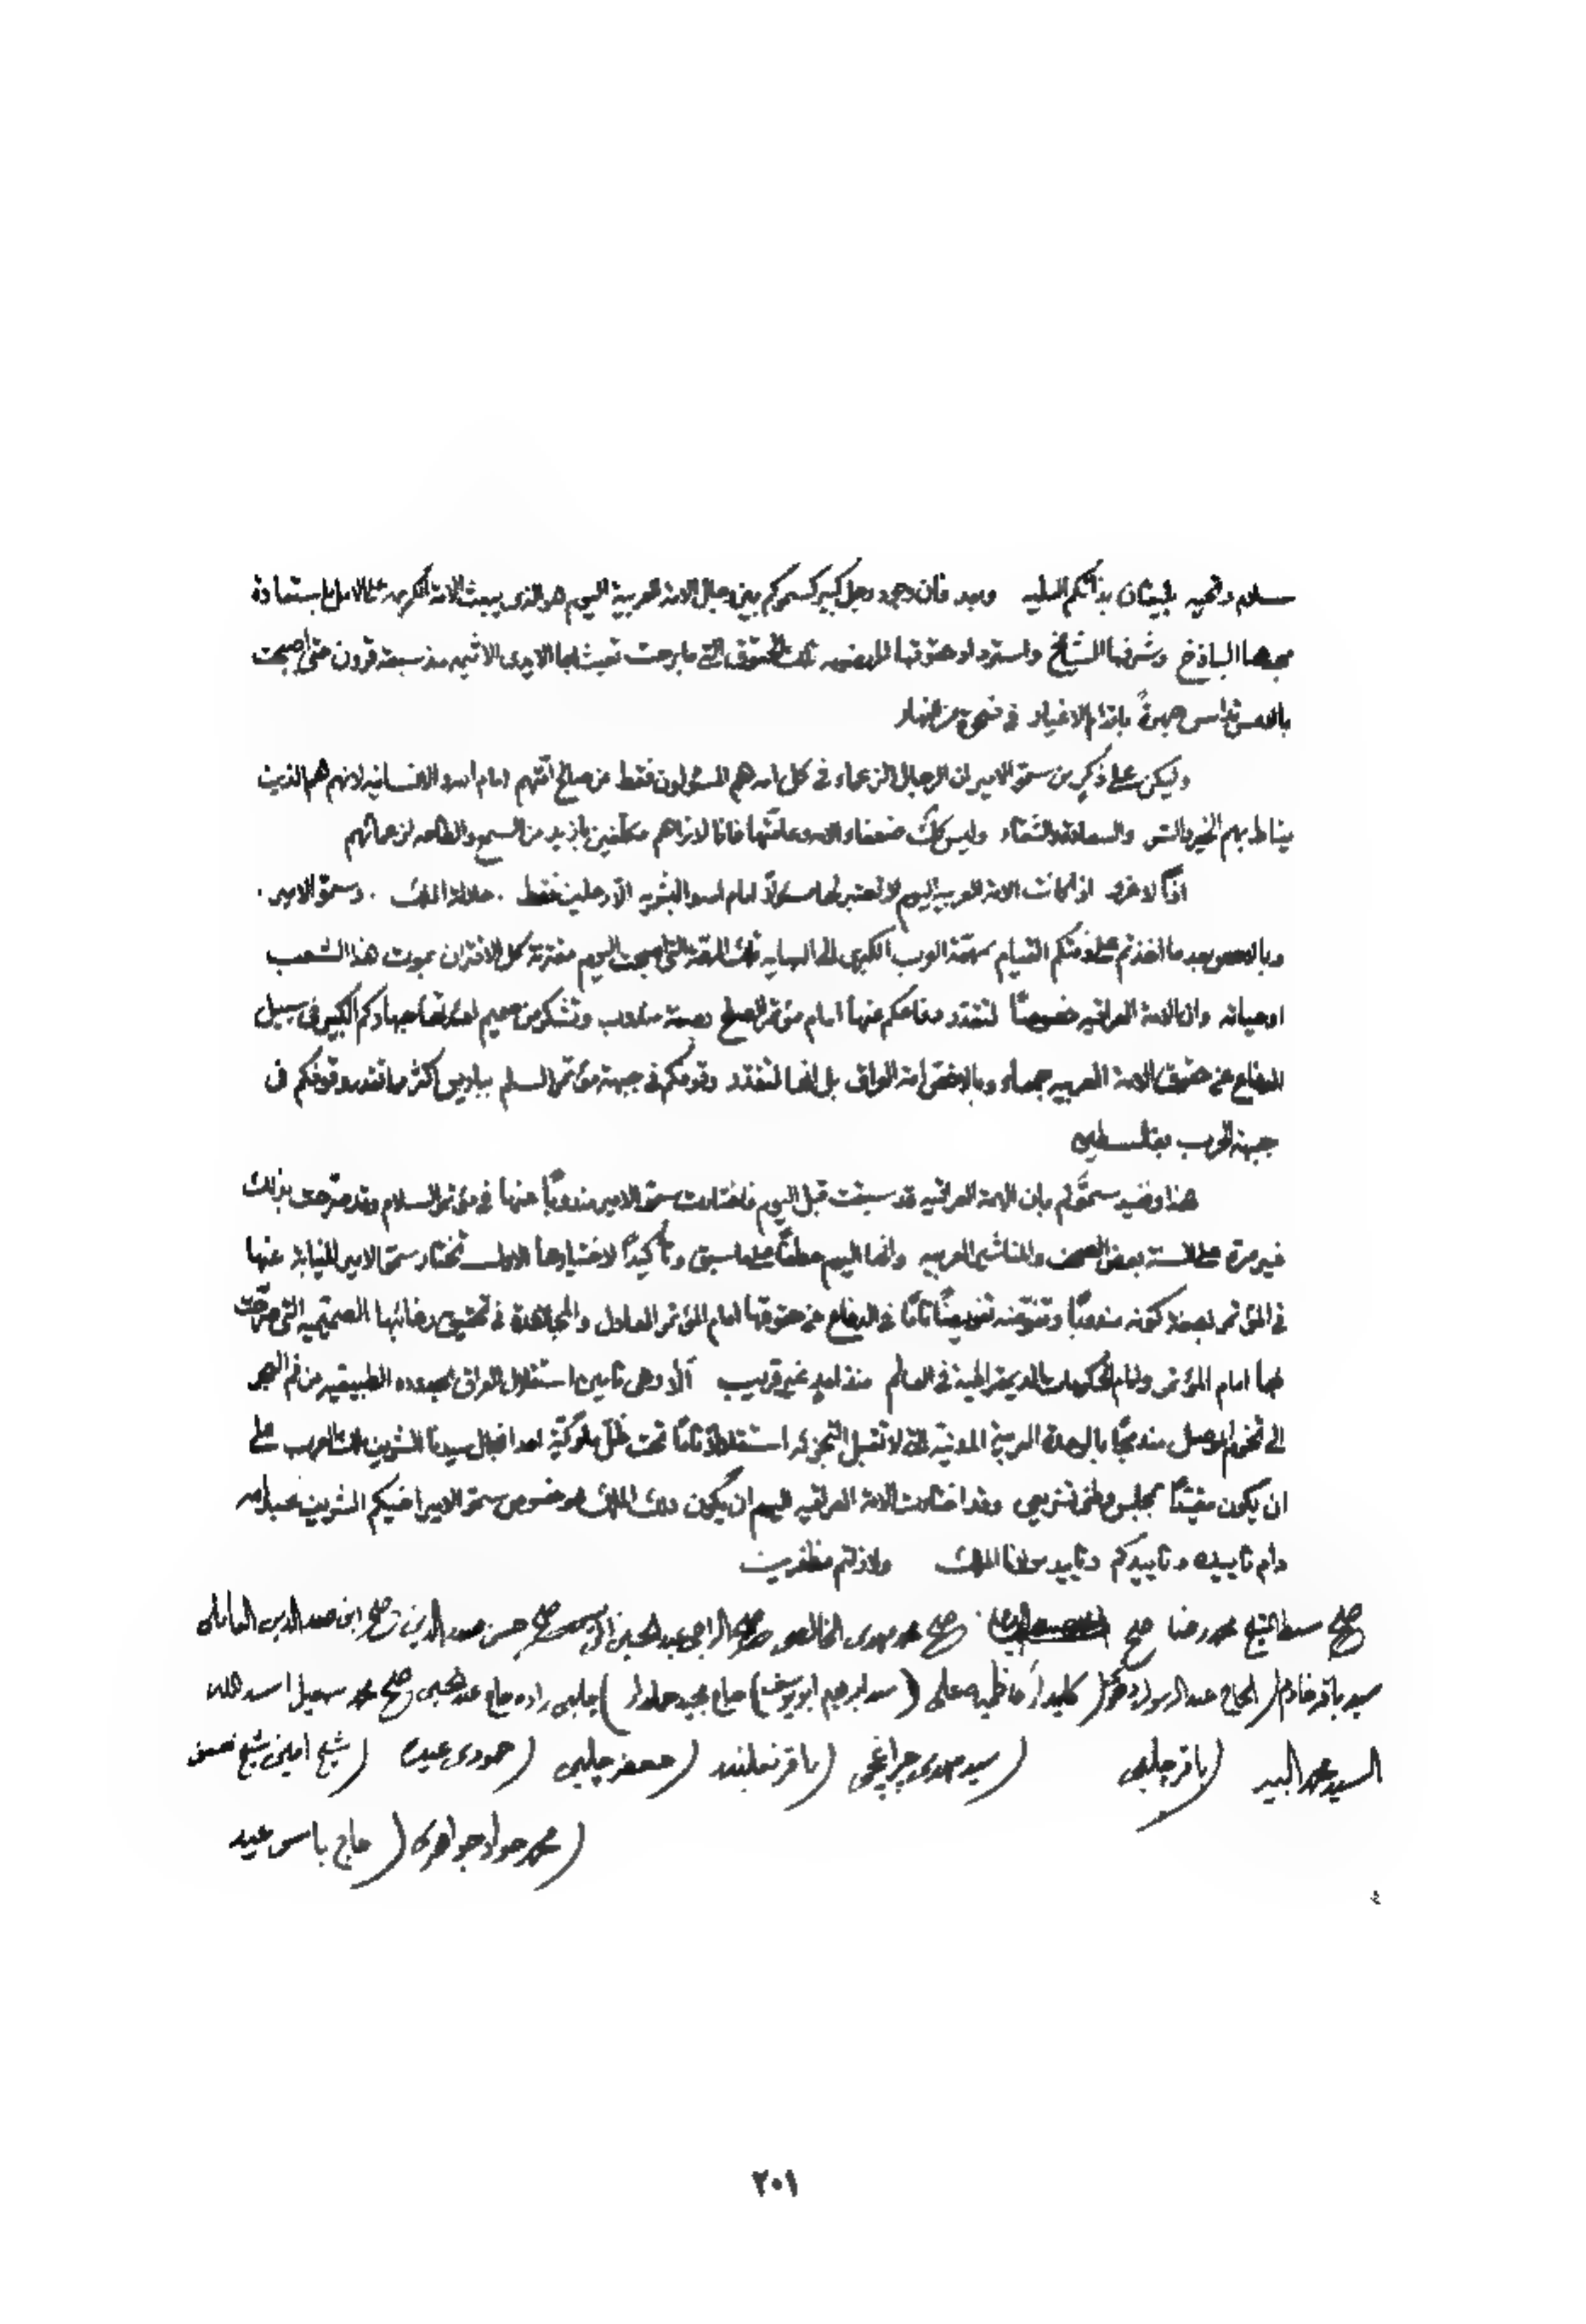 سلام وتحيه يليقان بذاتكم العليه وبعد فان وجود رجل كبير كسموكم بين رجال الامة العربية اليوم هو الذي يبعث الامة الكريمة على الامل باستعادة
مجدها الباذخ وشرفها الشامخ واسترداد حقوقها المهضومه تلك الحقوق التي ما برحت تعيث بها الايدي الاثيمه منذ سبعة قرون حتى اصبحت
بالامس تداس جهرةً باقدام الاغيار في ضحوة من النهار
وليكن على ذكر من سمو الامير ان الرجال الزعماء في كل امة هم المسئولون فقط عن صالح امتهم امام اسرة الانسانيه لانهم هم الذين
يناط بهم الخير والشر والسعادة والشقاء وليس كذلك ضعفاء الامه وعامتها فانا لا نراهم مكلفين بازيد من السمع والطاعه لزعمائهم
اذاً لا غرو اذا كانت الامة العربية اليوم لا تعتبر لها مسئولاً امام اسرة البشريه الا رجلين فقط . جلالة الملك . وسمو الامير .
وبالاخص بعد ما اخذتم على ذمتكم القيام بمهمة العرب الكبرى الى النهايه تلك المهمة التي اصبحت اليوم مقترنة كل الاقتران بموت هذا الشعب
او حياته وان الامة العراقيه خصوصاً لتقدر دفاعكم عنها امام مؤتمر الصلح بصفة مندوب وتشكر من صميم افئدتها جهادكم الكبير في سبيل
الدفاع عن حقوق الامة العربيه جمعاء وبالاخص امة العراق بل انها لتقدر وقوفكم في جبهة مؤتمر السلم بباريس اكثر مما تقدر وقوفكم في
جبهة الحرب بفلسطين
هذا ونفيد سموكم بان الامة العراقيه قد سبقت قبل اليوم فاختارت سمو الامير مندوباً عنها في مؤتمر السلام وقد صرحت بذلك
غير مرة على السنة بعض الصحف والمناشير العربيه وانها اليوم عطفاً على ما سبق وتأكيداً لاختيارها الاول تختار سمو الامير للنيابة عنها
في المؤتمر بصفة كونه مندوباً وتفوضه تفويضاً تاماً في الدفاع عن حقوقها امام المؤتمر العادل والمجاهدة في تحقيق رغائبها الصميميه التي صرحت
بها امام المؤتمر وامام الحكومات الديمقراطية في العالم منذ امد غير قريب الا وهي تامين استقلال العراق بحدوده الطبيعيه من فم البحر
الى تخوم الموصل مندمجاً بالوحدة العربية المدنية التي لا تقبل التجزئه استقلالاً تاماً تحت ظل ملوكية احد انجال سيدنا الشريف ملك العرب على
ان يكون مقيداً بمجلس وطني تشريعي وقد اختارت الامة العراقيه اليوم ان يكون ذلك الملك هو خصوص سمو الامير اخيكم الشريف عبدالله
دام تاييده وتاييدكم وتاييد مولانا الملك ولا زلتم مظفرين
صح سبط الشيخ محمد رضا صح صح محمد مهدي الخالصي صح الراجي عبد الحسين صح حسن صدر الدين صح ابن صدر الدين العاملي
سيد باقر خادم (الحاج عبد الرسول (كليدار كاظميه علي (سيد ابرهيم ابو يوسف) حاج مجيد علدار) چلبي زاده حاج عبد الحسين صح محمد اسد الله
السيد محمد السيد (باقر چلبي (سيد مهدي چراغچي (باقر نعلبند (جعفر چلبي (حمودي عبيد (شيخ امين شيخ
(محمد جواد جواهري (حاج ياس عبيد
٢٠١